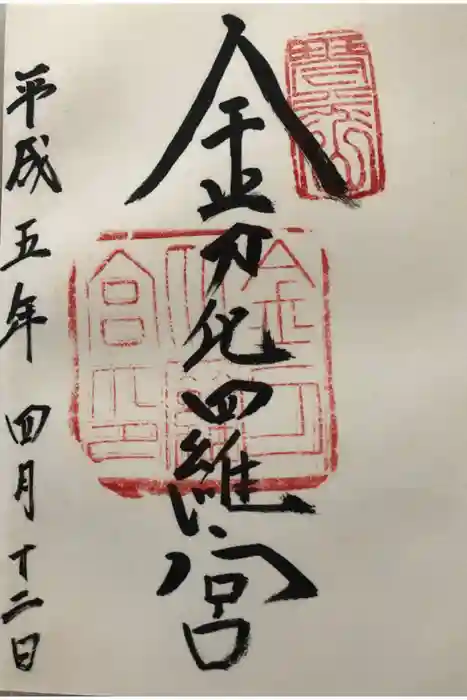 金刀比羅宮
金刀
比羅
宮之印
平成五年四月十二日